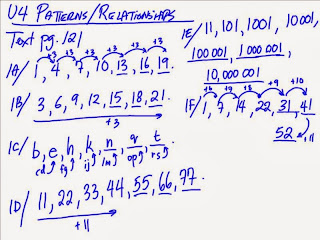 U4 PATTERNS/RELATIONSHIPS
Text pg. 121
+3 +3 +3 +3 +3
1A/ 1, 4, 7, 10, 13, 16, 19
1B/ 3, 6, 9, 12, 15, 18, 21
+3
1C/ b, e, h, k, n, q, t
cd fg ij lm op rs
1D/ 11, 22, 33, 44, 55, 66, 77
+11
1E/ 11, 101, 1001, 10001,
100 001, 1 000 001,
10,000 001
+8 +9 +10
1F/ 1, 7, 14, 22, 31, 41
52 11